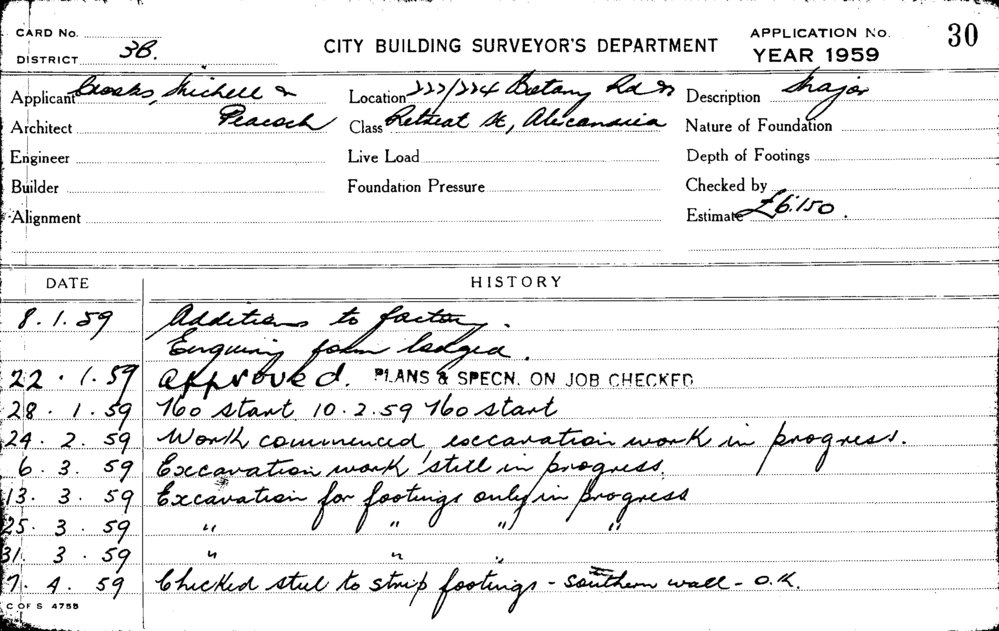 CARD No.
DISTRICT 3B.
CITY BUILDING SURVEYOR'S DEPARTMENT
APPLICATION No. 30
YEAR 1959
Applicant Crooks, Michell &
Peacock
Location 222/224 Botany Rd &
Class Retreat St, Alexandria
Description Major
Architect
Nature of Foundation
Engineer
Live Load
Depth of Footings
Builder
Foundation Pressure
Checked by
Alignment
Estimate £6.150.
DATE HISTORY
8.1.59 Additions to factory.
Enquiry form lodged.
22.1.59 Approved. PLANS & SPECN. ON JOB CHECKED
28.1.59 No start 10.2.59 No start
24.2.59 Work commenced, excavation work in progress.
6.3.59 Excavation work still in progress.
13.3.59 Excavation for footings only in progress
25.3.59 " " " "
31.3.59 " " "
7.4.59 Checked steel to strip footings - southern wall - O.K.
C OF S 4758